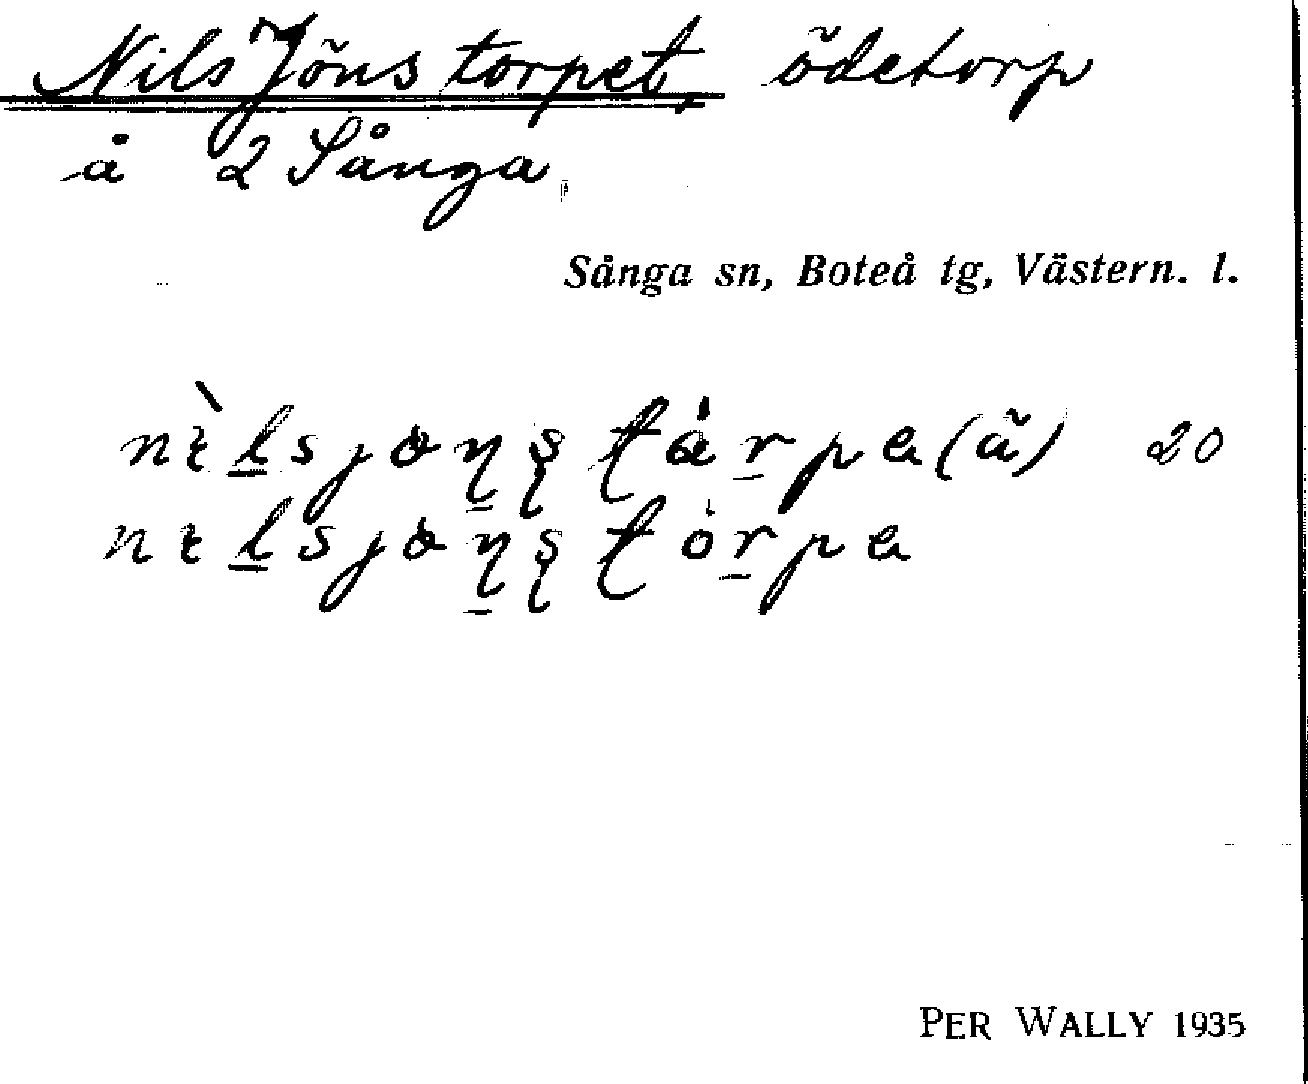 Nils Jöns torpet, ödetorp
å 2 Sånga
Sånga sn, Boteå tg, Västern. l.
20
PER WALLY 1935